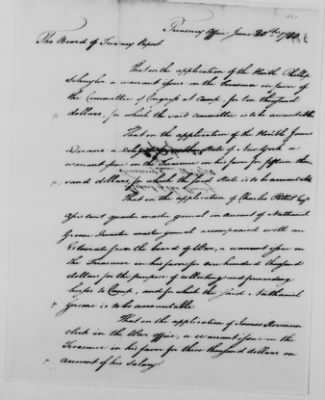 Treasury Office June 20th 1780
The Board of Treasury Report
That on the application of the Honble Phillip
Schuyler a warrant issue on the Treasurer in favor of
the Committee of Congress at Camp, for ten thousand
dollars, for which the said committee is to be accountable
That on the application of the Honble James
Duane a warrant issue on the Treasurer in his favor for fifteen thou
sand dollars, for which the said State is to be accountable
That on the application of Charles Pettit Esqr
Assistant quarter master general in account of Nathaniel
Greene Quarter master general accompanied with an
Estimate from the board of War, a warrant issue on
the Treasurer in his favor for one hundred thousand
dollars for the purpose of collecting and forwarding
horses to Camp, and for which the said Nathaniel
Greene is to be accountable
That on the application of James
clerk in the War office, a warrant issue on the
Treasurer in his favor for three thousand dollars on
account of his Salary